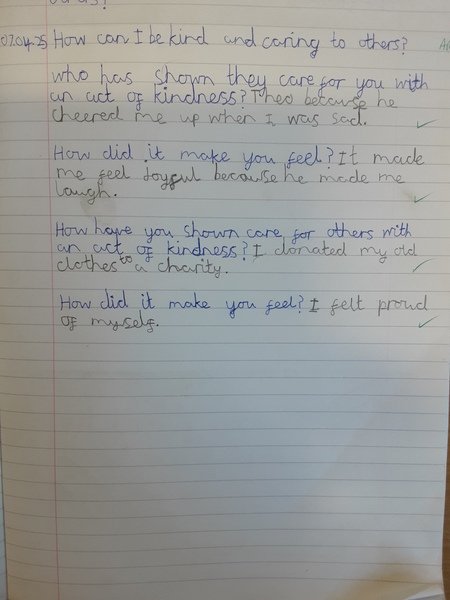 07.04.25 How can I be kind and caring to others?
who has shown they care for you with
an act of kindness? Theo because he
cheered me up when I was sad.
How did it make you feel? It made
me feel Joyful because he made me
laugh.
How have you shown care for others with
an act of kindness? I donated my old
clothes to a charity.
How did it make you feel? I felt proud
of myself.